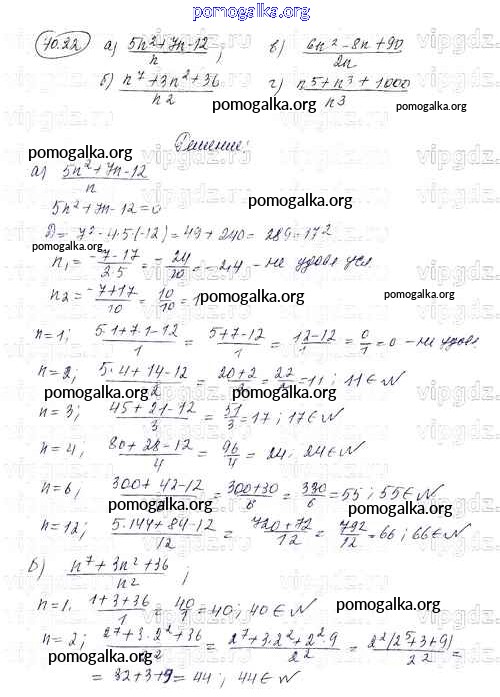 pomogalka.org
40.22 а) (5n²+7n-12)/n ; в) (6n²-8n+90)/2n
б) (n⁷+3n²+36)/n2 г) (n⁵+n³+1000)/n3
pomogalka.org pomogalka.org
Решение:
pomogalka.org
а) (5n²+7n-12)/n
5n²+7n-12=0 pomogalka.org
D= 7²-4·5(-12)=49+240= 289=17²
n₁= (-7-17)/(2·5) = -24/10 = -2,4 - не удов. усл
n2= (-7+17)/10 = 10/10 = 1 pomogalka.org pomogalka.org
n=1; (5·1+7·1-12)/1 = (5+7-12)/1 = (12-12)/1 = 0/1 =0 - не удов
n=2; (5·4+14-12)/2 = (20+2)/2 = 22/2 =11 ; 11∈N
pomogalka.org pomogalka.org
n=3; (45+21-12)/3 = 51/3 =17 ; 17∈N
n=4; (80+28-12)/4 = 96/4 = 24; 24∈N
pomogalka.org pomogalka.org
n=6; (300+42-12)/6 = (300+30)/6 = 330/6 = 55 ; 55∈N
pomogalka.org
n=12; (5·144+84-12)/12 = (720+72)/12 = 792/12 =66 ; 66∈N
pomogalka.org
б) (n⁷+3n²+36)/n² ;
n=1. (1+3+36)/1 = 40/1 = 40; 40∈N pomogalka.org
n=2; (2⁷+3·2²+36)/2² = (2⁷+3·2²+2²·9)/2² = 2²(2⁵+3+9)/2² =
pomogalka.org
= 32+3+9= 44 ; 44∈N pomogalka.org